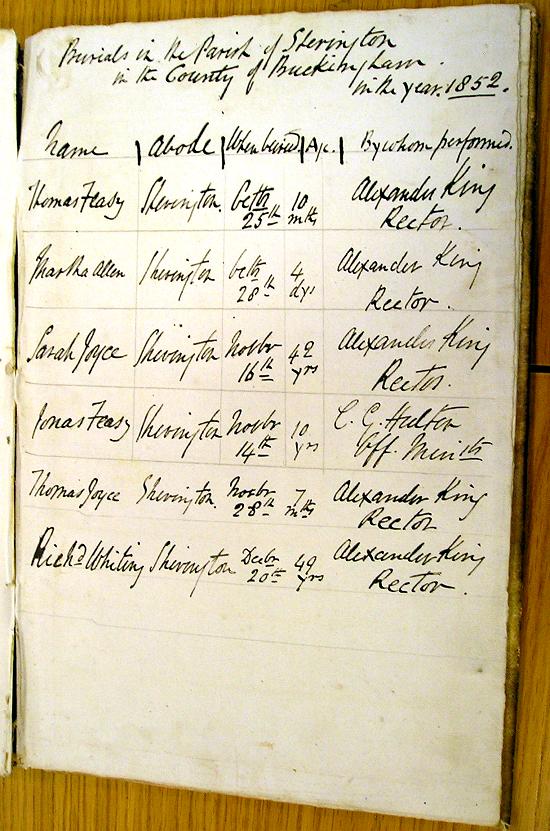 Burials in the Parish of Sherington
in the County of Buckingham.
in the year 1852.
Name Abode When buried Age. By whom performed.
Thomas Feasy Sherington. Octbr 25th 10 mths Alexander King Rector.
Martha Allen Sherington Octbr 28th 4 dys Alexander King Rector.
Sarah Joyce Sherington Novbr 16th 42 yrs Alexander King Rector.
Jonas Feasy Sherington Novbr 14th 10 yrs C. G. Hulton Off. Ministr
Thomas Joyce Sherington. Novbr 28th 7 mths Alexander King Rector
Richd Whiting Sherington Decbr 20th 49 yrs Alexander King Rector.